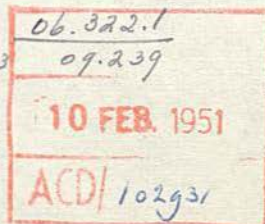 06.322.1
3 09.239
10 FEB. 1951
ACD/ 102931